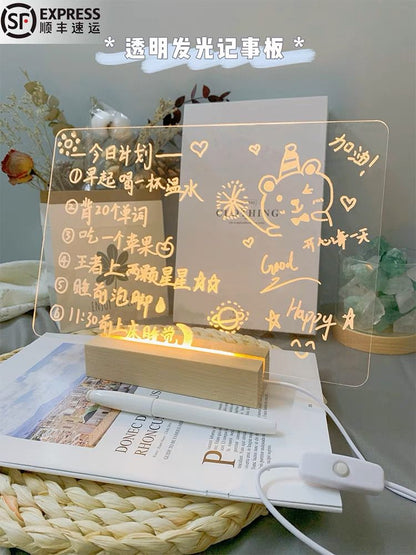 SF EXPRESS
顺丰速运
* 透明发光记事板 *
今日计划
①早起喝一杯温水
②背20个单词
③吃一个苹果
④王者上两颗星星
⑤睡前泡脚
⑥11:30前上床睡觉
加油!
开心每一天
Good
Happy
CLOTHING
DONEC DE
RHONCU
P